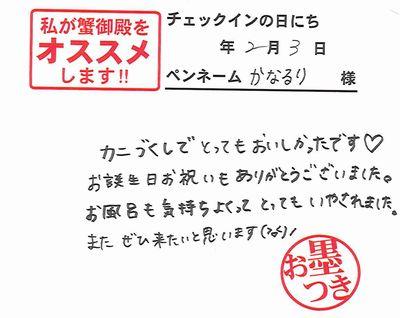 私が蟹御殿を
オススメ
します!!
チェックインの日にち
年 2月 3 日
ペンネーム かなるり 様
カニづくしでとってもおいしかったです♡
お誕生日お祝いもありがとうございました。
お風呂も気持ちよくってとってもいやされました。
また ぜひ来たいと思います
お墨つき